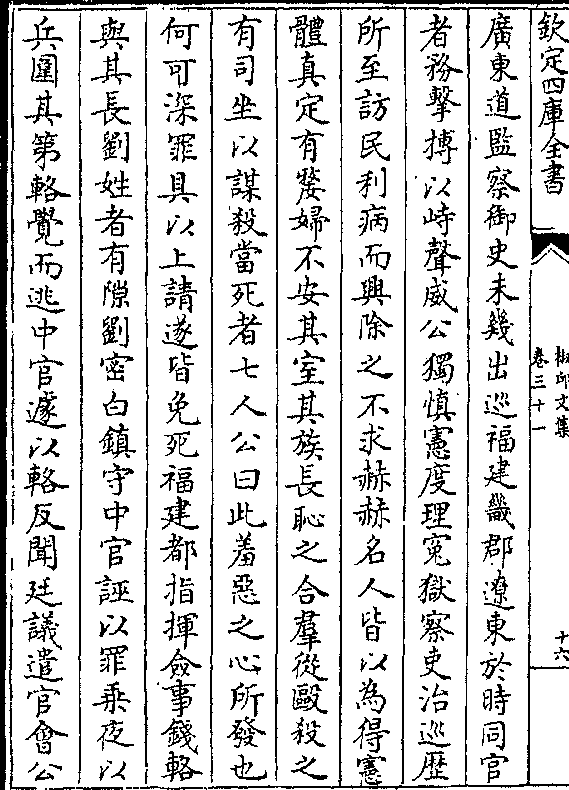 欽定四庫全書
椒邱文集
卷三十一
十六
廣東道監察御史未幾出巡福建畿郡遼東於時同官
者務擊搏以峙聲威公獨慎憲度理寃獄察吏治巡歴
所至訪民利病而興除之不求赫赫名人皆以為得憲
體真定有嫠婦不安其室其族長恥之合羣從毆殺之
有司坐以謀殺當死者七人公曰此羞惡之心所發也
何可深罪具以上請遂皆免死福建都指揮僉事錢輅
與其長劉姓者有隙劉密白鎮守中官誣以罪乗夜以
兵圍其第輅覺而逃中官遽以輅反聞廷議遣官會公